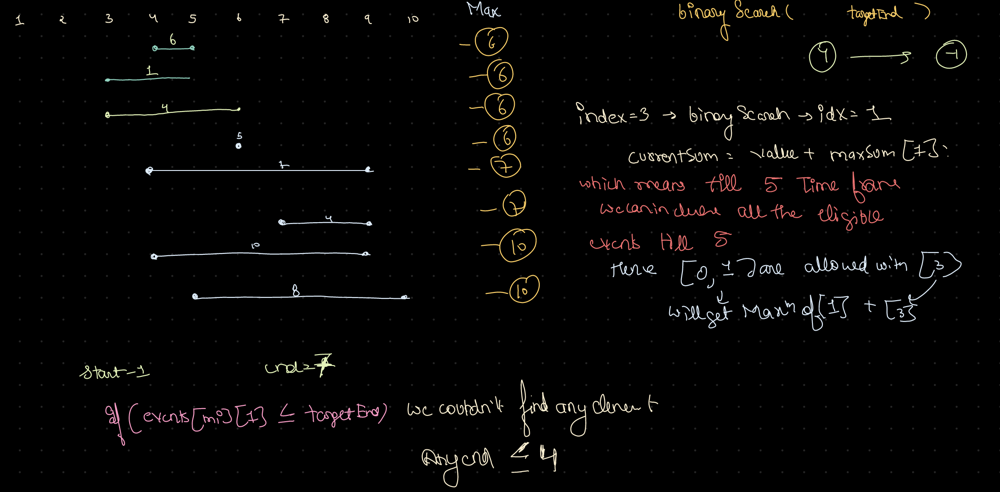 1 2 3 4 5 6 7 8 9 10
Max
binary Search ( targetEnd )
6
6
4 → -1
1
6
4
6
index=3 → binary Search → idx= 1
5
6
currentSum = value + maxSum [1]:
7
7
which means till 5 Time frame
4
7
we can include all the eligible
10
10
events till 5
8
10
Hence [0, 1] are allowed with [3]
will get Max^m of [1] + [3]
start-1
end=7
if (events[mid][1] ≤ targetEnd)
we couldn't find any element
Any end ≤ 4